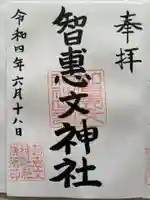 奉拝
智惠文神社
令和四年六月十八日